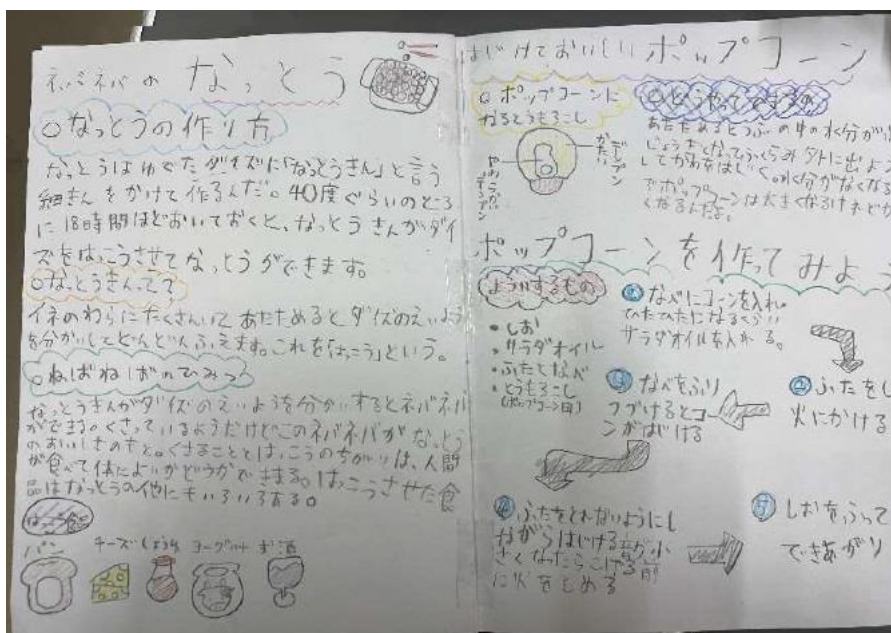 ネバネバの なっとう
○なっとうの作り方
なっとうはゆでたダイズに「なっとうきん」と言う
細きんをかけて作るんだ。40度ぐらいのところ
に18時間ほどおいておくと、なっとうきんがダイ
ズをはっこうさせてなっとうができます。
○なっとうきんって?
イネのわらにたくさんいてあたためるとダイズのえいよう
を分かいしてどんどんふえます。これを「はっこう」という。
○ねばねばのひみつ
なっとうきんがダイズのえいようを分かいするとネバネバ
ができる。くさっているようだけどこのネバネバがなっとう
のおいしさのもと。くさることとはっこうのちがいは、人間
が食べて体によいかどうかできまる。はっこうさせた食
品はなっとうの他にもいろいろある。
はっこう食品
パン チーズ しょうゆ ヨーグルト お酒
はじけておいしい ポップコーン
○ポップコーンに
なるとうもろこし
かたいデンプン
やわらかいデンプン
○どうやってできるの
あたためるとつぶの中の水分が
じょうきとなってふくらみ外に出よ
してかわをはじく。水分がなくなる
でポップコーンは大きくなるけれど
くなるんだよ。
ポップコーンを作ってみよう
よういするもの
・しお
・サラダオイル
・ふたとなべ
・とうもろこし
(ポップコーン用)
①なべにコーンを入れ
ひたひたになるくらい
サラダオイルを入れる。
②ふたをし
火にかける
③なべをふり
つづけるとコー
ンがはじける
④ふたをとれないようにし
ながらはじける音が小
さくなったらこげる前
に火をとめる
⑤しおをふって
できあがり